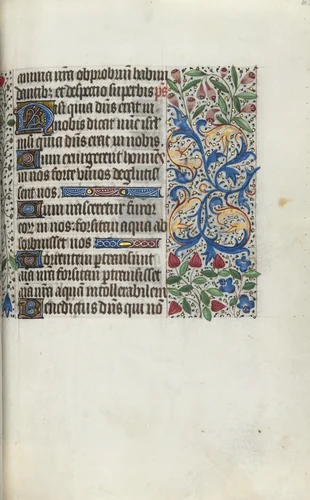 anima nr̄a obprobriū habun
dantib; et despectio superbis ps̄
Nisi quia dn̄s erat in
nobis dicat nūc isrl̄
nisi quia dn̄s erat in nobis.
Cum exurgerent homines
in nos forte viuos deglutis
sent nos
Cum irasceretur furor
eor̄ in nos: forsitan aqua ab
sorbuisset nos
Torrentem ptransiuit
aīa nr̄a forsitan ptransisset
aīa nr̄a aquā intollerabilem
Benedictus dn̄s qui nō